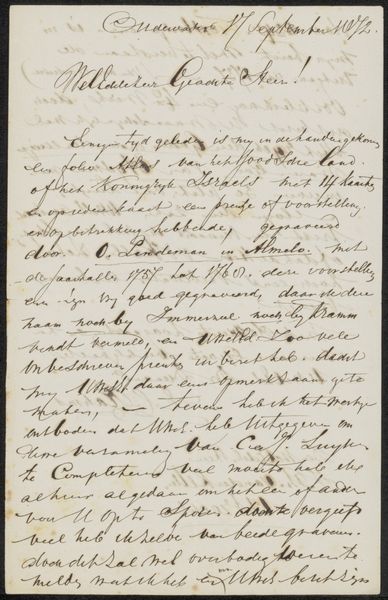 Oudewater 17 September 1872.
WelEdelheer Geachte Heer!
Eenige tyd geleden is my in de handen gekomen
een folio Atlas van het Joodsche land
of het Koningryk Israels met 14 kaarten
en op iedere kaart een prentje of voorstelling
er op betrekking hebbende, gegraveerd
door O. Lindeman in Almelo met
de Jaartallen 1757 tot 1760. deze voorstellin
gen zyn vry goed gegraveerd, daar ik deze
naam noch by Immerzeel noch by Kramm
vindt vermeld, en UWelEd zoo vele
onbeschreven prents heeft. dacht
my UWelE daar eens opmerkzaam op te
maken, — tevens heb ik het werkje
ontboden dat UWelE hebt Uitgegeven om
verzameling van Luyken
te Completeren veel moeite heb ik
al gedaan om het een of ander
van op te Sporen doch te vergeefs
veel heb ik van beide graveurs.
doch dit zal wel overbodig wezen te
melden wat ik heb UWelE bezit zyn